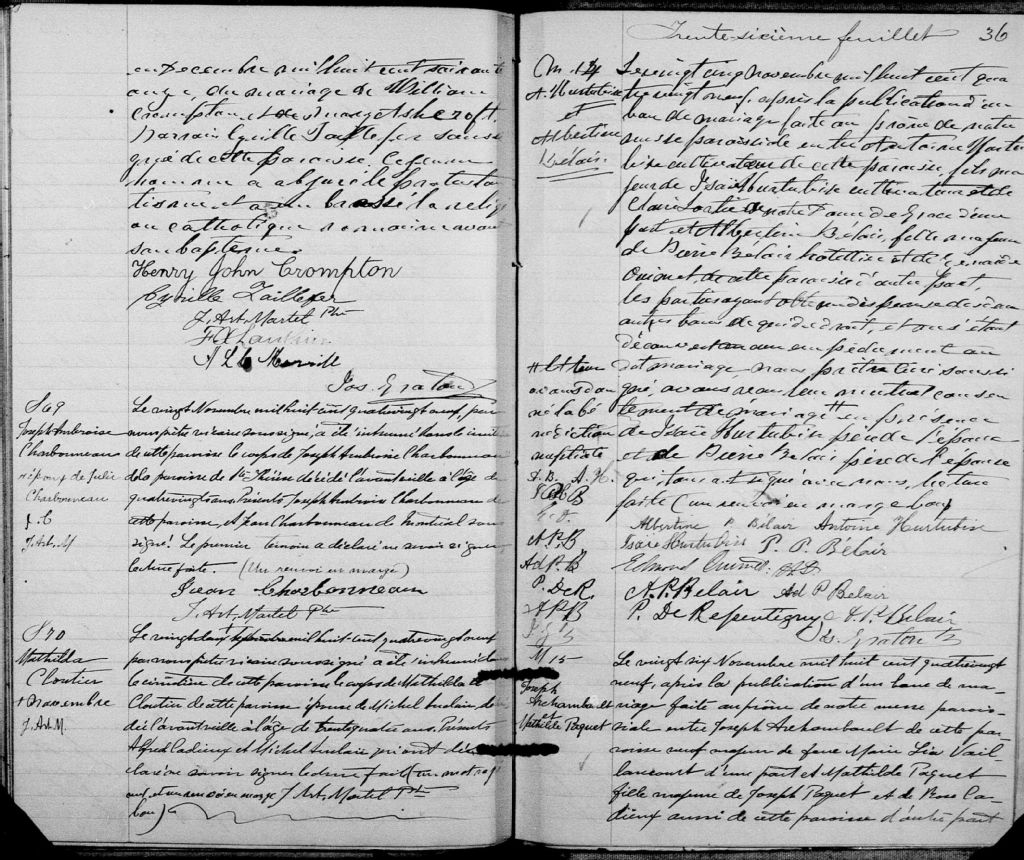 en Decembre mil huit cent soixante
onze, du mariage de William
Crompton et de Mary Ashcroft.
Parrain Cyrille Taillefer soussi
gné de cette paroisse. Ce jeune
homme a abjuré le protestan
tisme et a embrassé la religi
on catholique romaine avant
son baptême.
Henry John Crompton
Cyrille Taillefer
J. Art. Martel Ptre
A L
Jos. Graton
S 69
Joseph Ambroise
Charbonneau
époux de Julie
Charbonneau
J. C
J. Art. M
Le vingt Novembre mil huit cent quatrevingt neuf, par
nous prêtre vicaire soussigné, a été inhumé dans le cimetière
de cette paroisse le corps de Joseph Ambroise Charbonneau
de la paroisse de Ste Thérèse décédé l'avant veille à l'âge de
quatrevingt ans. Présents Joseph Ambroise Charbonneau de
cette paroisse, et Jean Charbonneau de Montréal sous
signé. Le premier témoin a déclaré ne savoir signer
lecture faite. (Un renvoi en marge)
Jean Charbonneau
J. Art. Martel Ptre
S 70
Mathilda
Cloutier
+ Novembre
J. Art. M.
Le vingt Novembre mil huit cent quatrevingt neuf
par nous prêtre vicaire soussigné a été inhumé dans
le cimetière de cette paroisse le corps de Mathilda
Cloutier de cette paroisse épouse de Michel
décédé l'avant veille à l'âge de trente quatre ans. Présents
Alfred Cadieux et Michel qui ont dé
claré ne savoir signer lecture faite (un mot ray
é, et un renvoi en marge J. Art. Martel Ptre
bon)
Trente-sixième feuillet 36
M. 14
A. Hurtubise
et
Albertine
Bélair.
Le vingt cinq novembre mil huit cent qua
tre vingt neuf, après la publication d'un
ban de mariage faite au prône de notre
messe paroissiale entre Antoine Hurtu
bise cultivateur de cette paroisse, fils ma
jeur de Isaïe Hurtubise cultivateur et de
Claire de Notre Dame de Grace d'une
part, et Albertine Bélair, fille majeure
de Pierre Bélair hotellier et de
Ouimet, de cette paroisse d'autre part,
les parties ayant obtenu dispense de deux
autres bans de qui de droit, et ne s'étant
découvert aucun empêchement au
dit mariage, nous prêtre curé soussi
gné, avons reçu leur mutuel consen
tement de mariage # en présence
de Isaïe Hurtubise père de l'époux
et de Pierre Bélair père de l'épouse
qui, tous ont signé avec nous, lecture
faite (un renvoi en marge bon)
# et leur
avons don
né la bé
nédiction
nuptiale
A. B. A. H.
A. P. B
Ad P. B
P. DeR.
A P B
Albertine P. Bélair Antoine Hurtubise
Isaïe Hurtubise P. P. Bélair
Edmond Ouimet
A. P. Belair Ad P Belair
P. De Repentigny A. P. Belair
Jos. Graton
M 15
Joseph
Archambault
et
Mathilde Paquet
Le vingt six Novembre mil huit cent quatrevingt
neuf, après la publication d'un banc de ma-
riage faite au prône de notre messe parois-
siale entre Joseph Archambault de cette pa-
roisse veuf majeur de feue Marie Léa Vail-
lancourt d'une part et Mathilde Paquet
fille majeure de Joseph Paquet et de Rose Ca-
dieux aussi de cette paroisse d'autre part